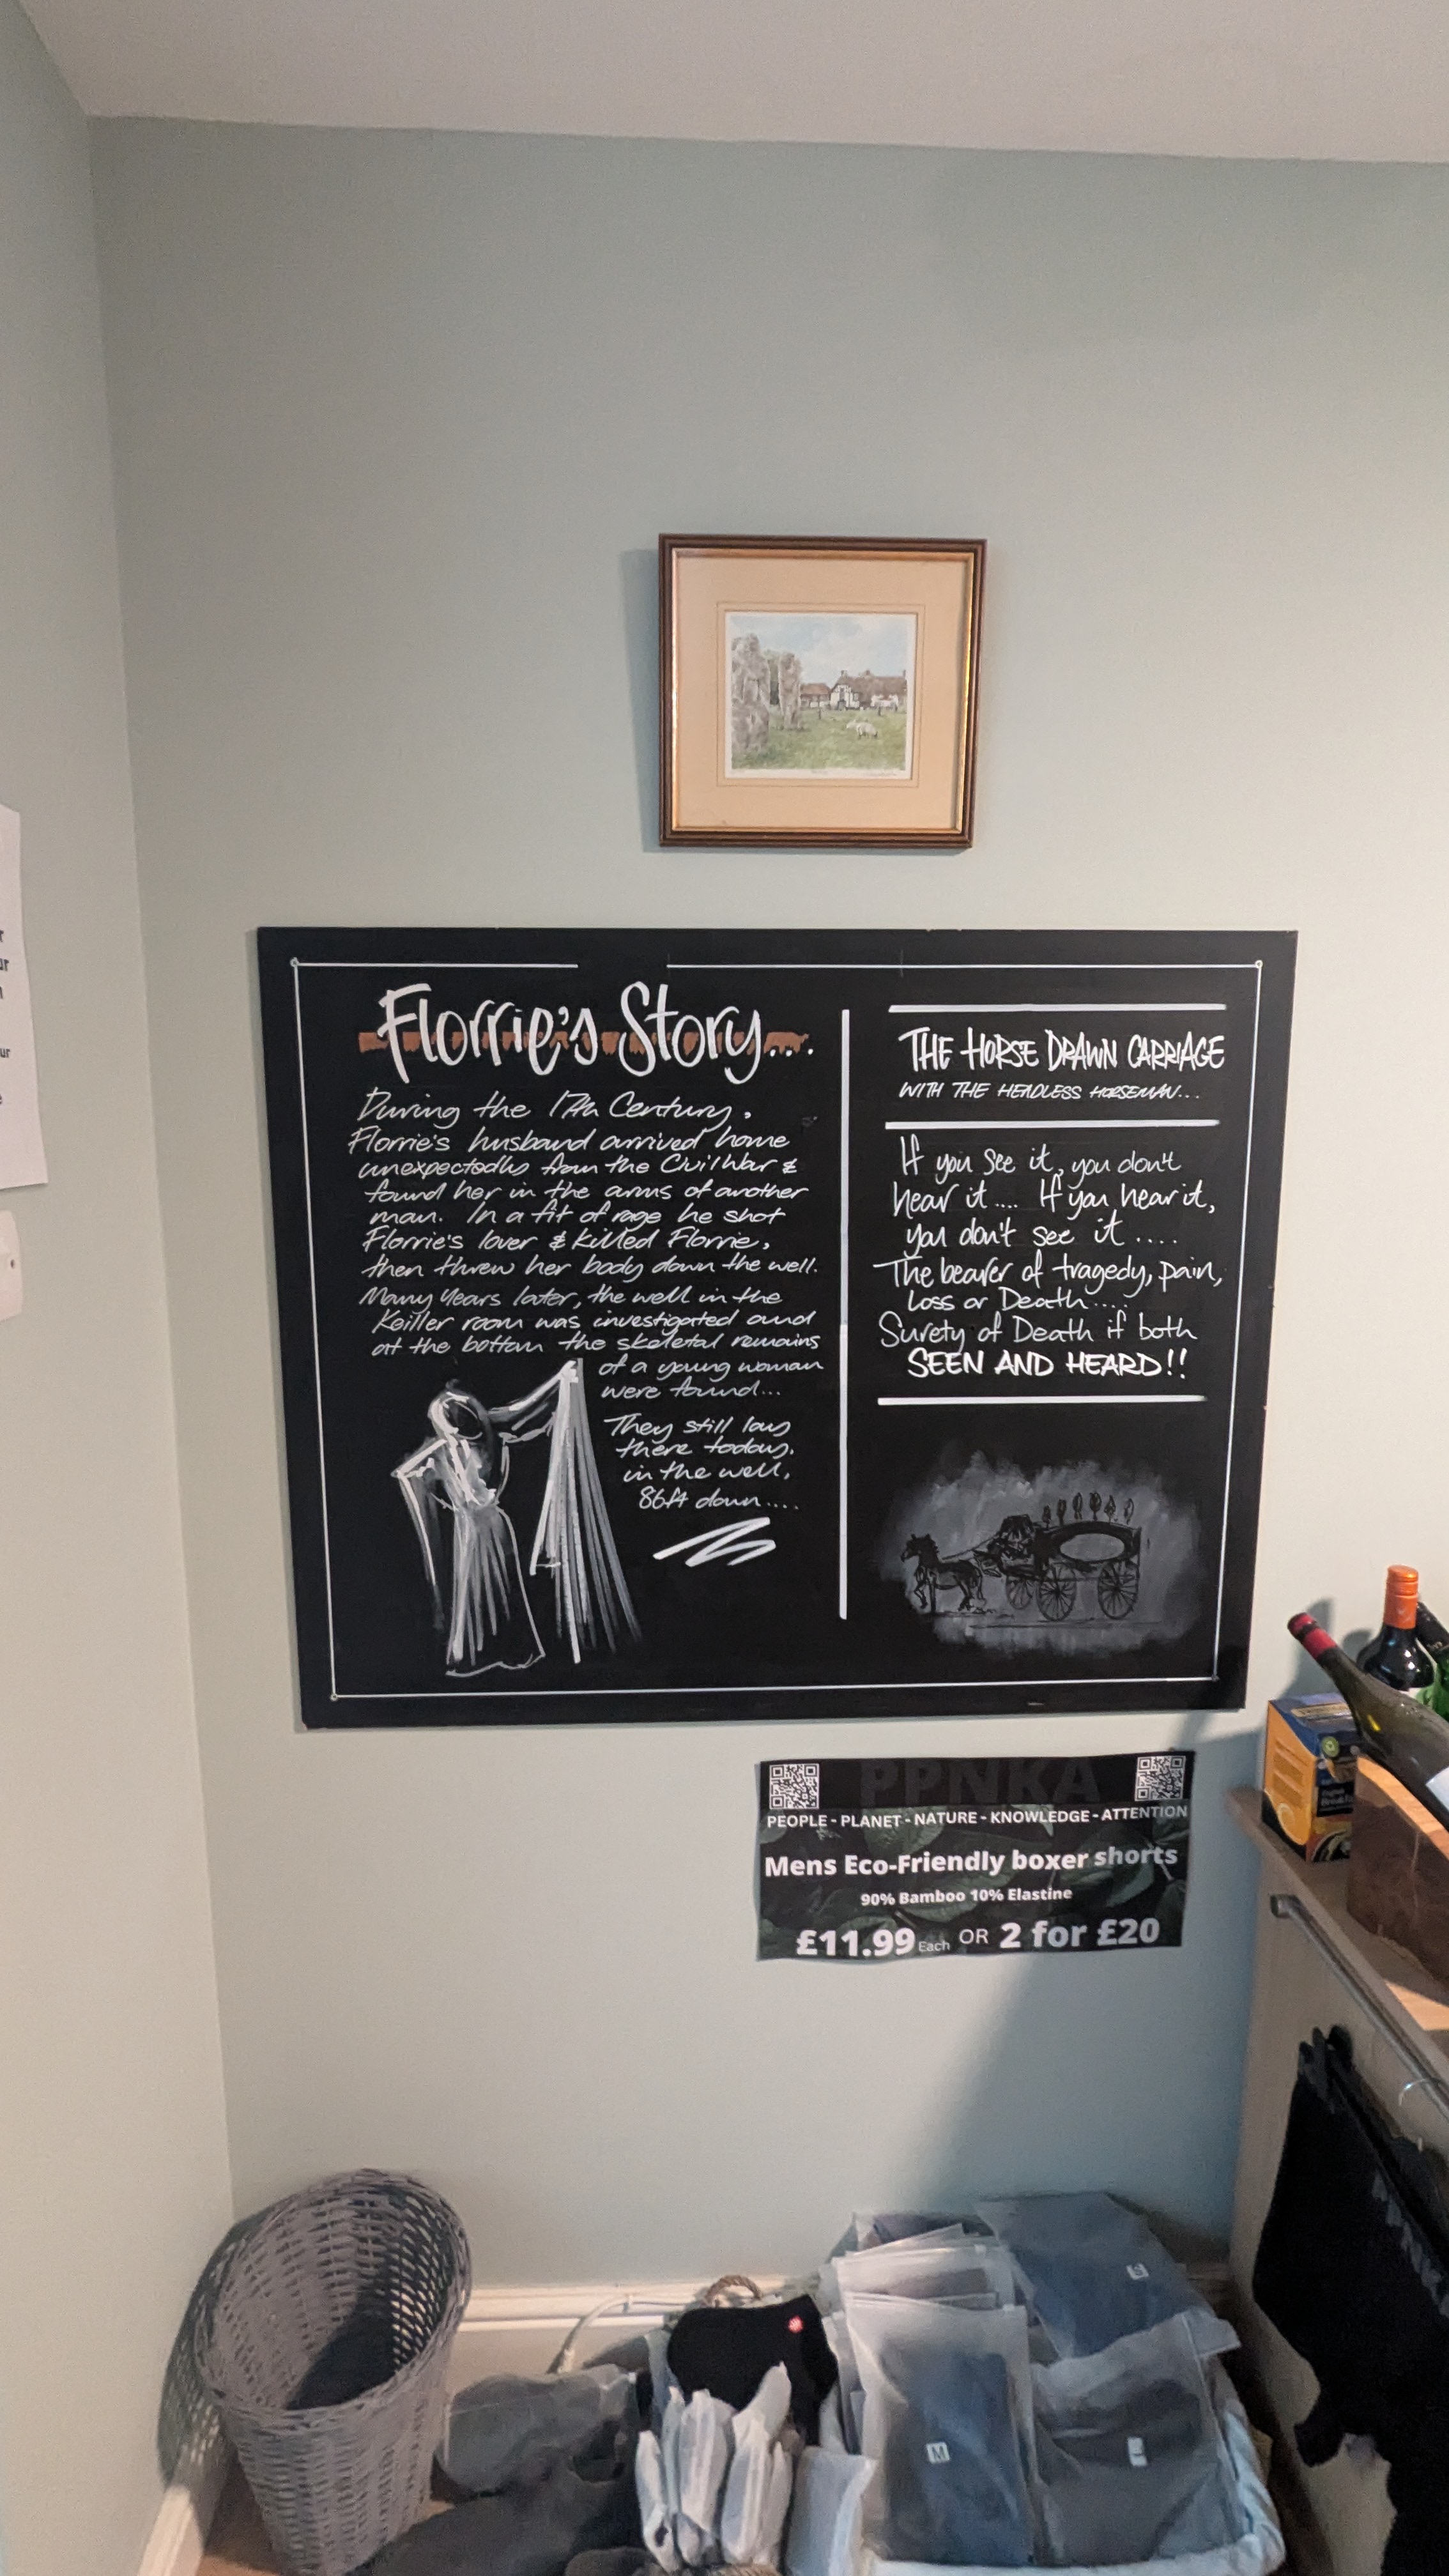 Florrie's Story...
During the 17th Century,
Florrie's husband arrived home
unexpectedly from the Civil War &
found her in the arms of another
man. In a fit of rage he shot
Florrie's lover & killed Florrie,
then threw her body down the well.
Many years later, the well in the
Keiller room was investigated and
at the bottom the skeletal remains
of a young woman
were found...
They still lay
there today,
in the well,
86ft down....
THE HORSE DRAWN CARRIAGE
WITH THE HEADLESS HORSEMAN...
If you see it, you don't
hear it.... If you hear it,
you don't see it .....
The bearer of tragedy, pain,
Loss or Death.....
Surety of Death if both
SEEN AND HEARD!!
PPNKA
PEOPLE - PLANET - NATURE - KNOWLEDGE - ATTENTION
Mens Eco-Friendly boxer shorts
90% Bamboo 10% Elastine
£11.99 Each OR 2 for £20
M